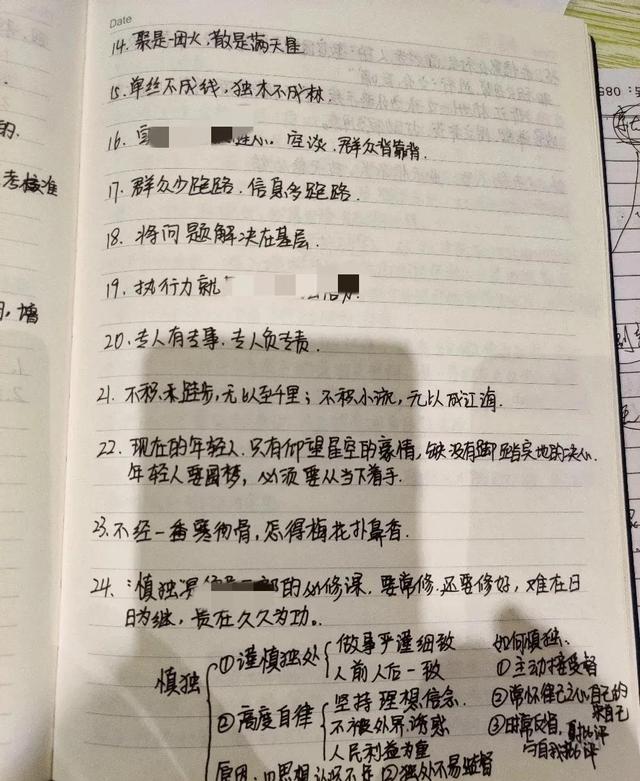 Date
14. 聚是一团火，散是满天星
15. 单丝不成线，独木不成林.
16. 座谈、群众背靠背.
17. 群众少跑路、信息多跑路.
18. 将问题解决在基层.
19. 执行力就
20. 专人有专事、专人负专责.
21. 不积跬步，无以至千里；不积小流，无以成江海.
22. 现在的年轻人，只有仰望星空的豪情，缺没有脚踏实地的决心.
年轻人要圆梦，必须要从当下着手.
23. 不经一番寒彻骨，怎得梅花扑鼻香.
24. 慎独是 的必修课，要常修、还要修好，难在日
日为继，贵在久久为功。
慎独
①谨慎独处
做事严谨细致
人前人后一致
②高度自律
坚持理想信念.
不被外界诱惑
人民利益为重
如何慎独:
①主动接受督
②常怀律己之心
③日常反省,
与自我批评
原因: ②独处不易监督
的.
考核准